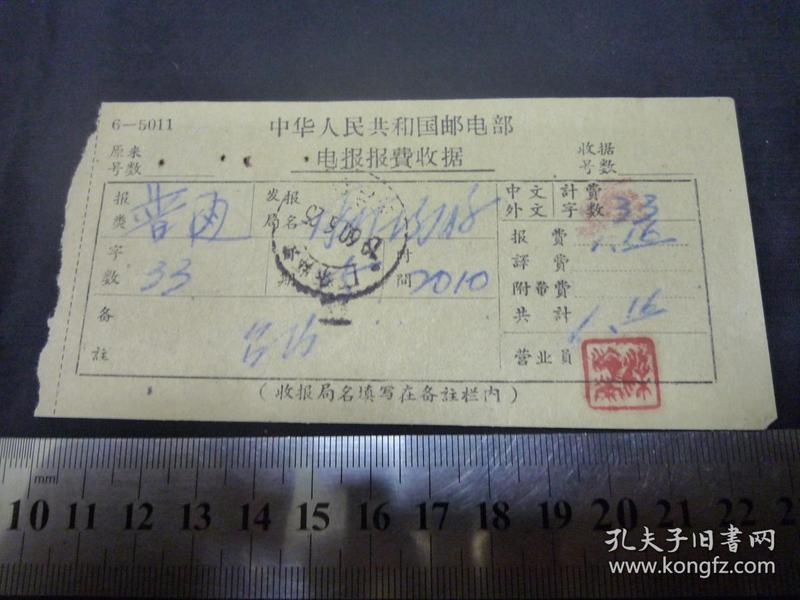 6—5011
中华人民共和国邮电部
电报报费收据
原来号数
收据号数
报类 普通 发报局名
中文外文 計費字数 33
字数 33 期 5 时間 2010
报費 1.16
譯費
附帶費
共計 1.16
备註
营业员
(收报局名填写在备註栏内)
mm
10 11 12 13 14 15 16 17 18 19 20 21 22 2
孔夫子旧书网
www.kongfz.com